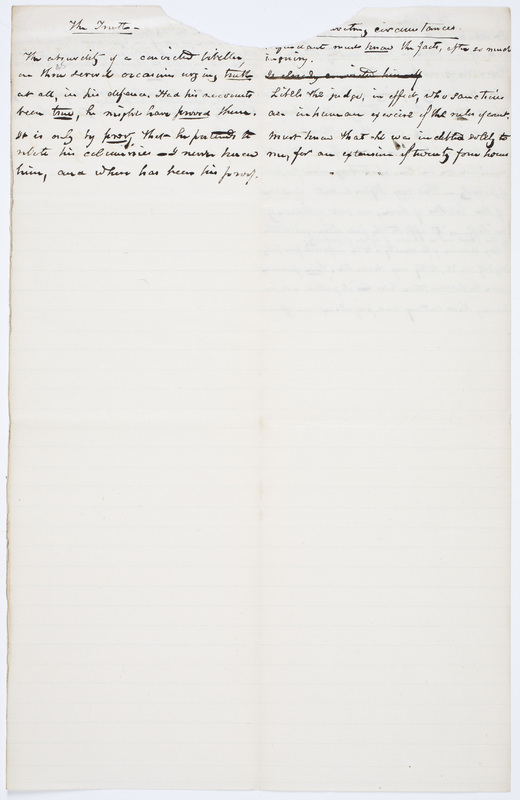 The Truth -
The absurdity of a convicted libeller,
on three several occasions urging truth
at all, in his defence. Had his accounts
been true, he might have proved them.
It is only by proof, that he pretends to
relate his calumnies - I never knew
him, and where has been his proof.
circumstances
must know the facts, after so much
inquiry.
Little the judge, in effect, who sanctions
an inhuman exercise of the rules of court,
must know that he was indebted solely to
me, for an extension of twenty four hours